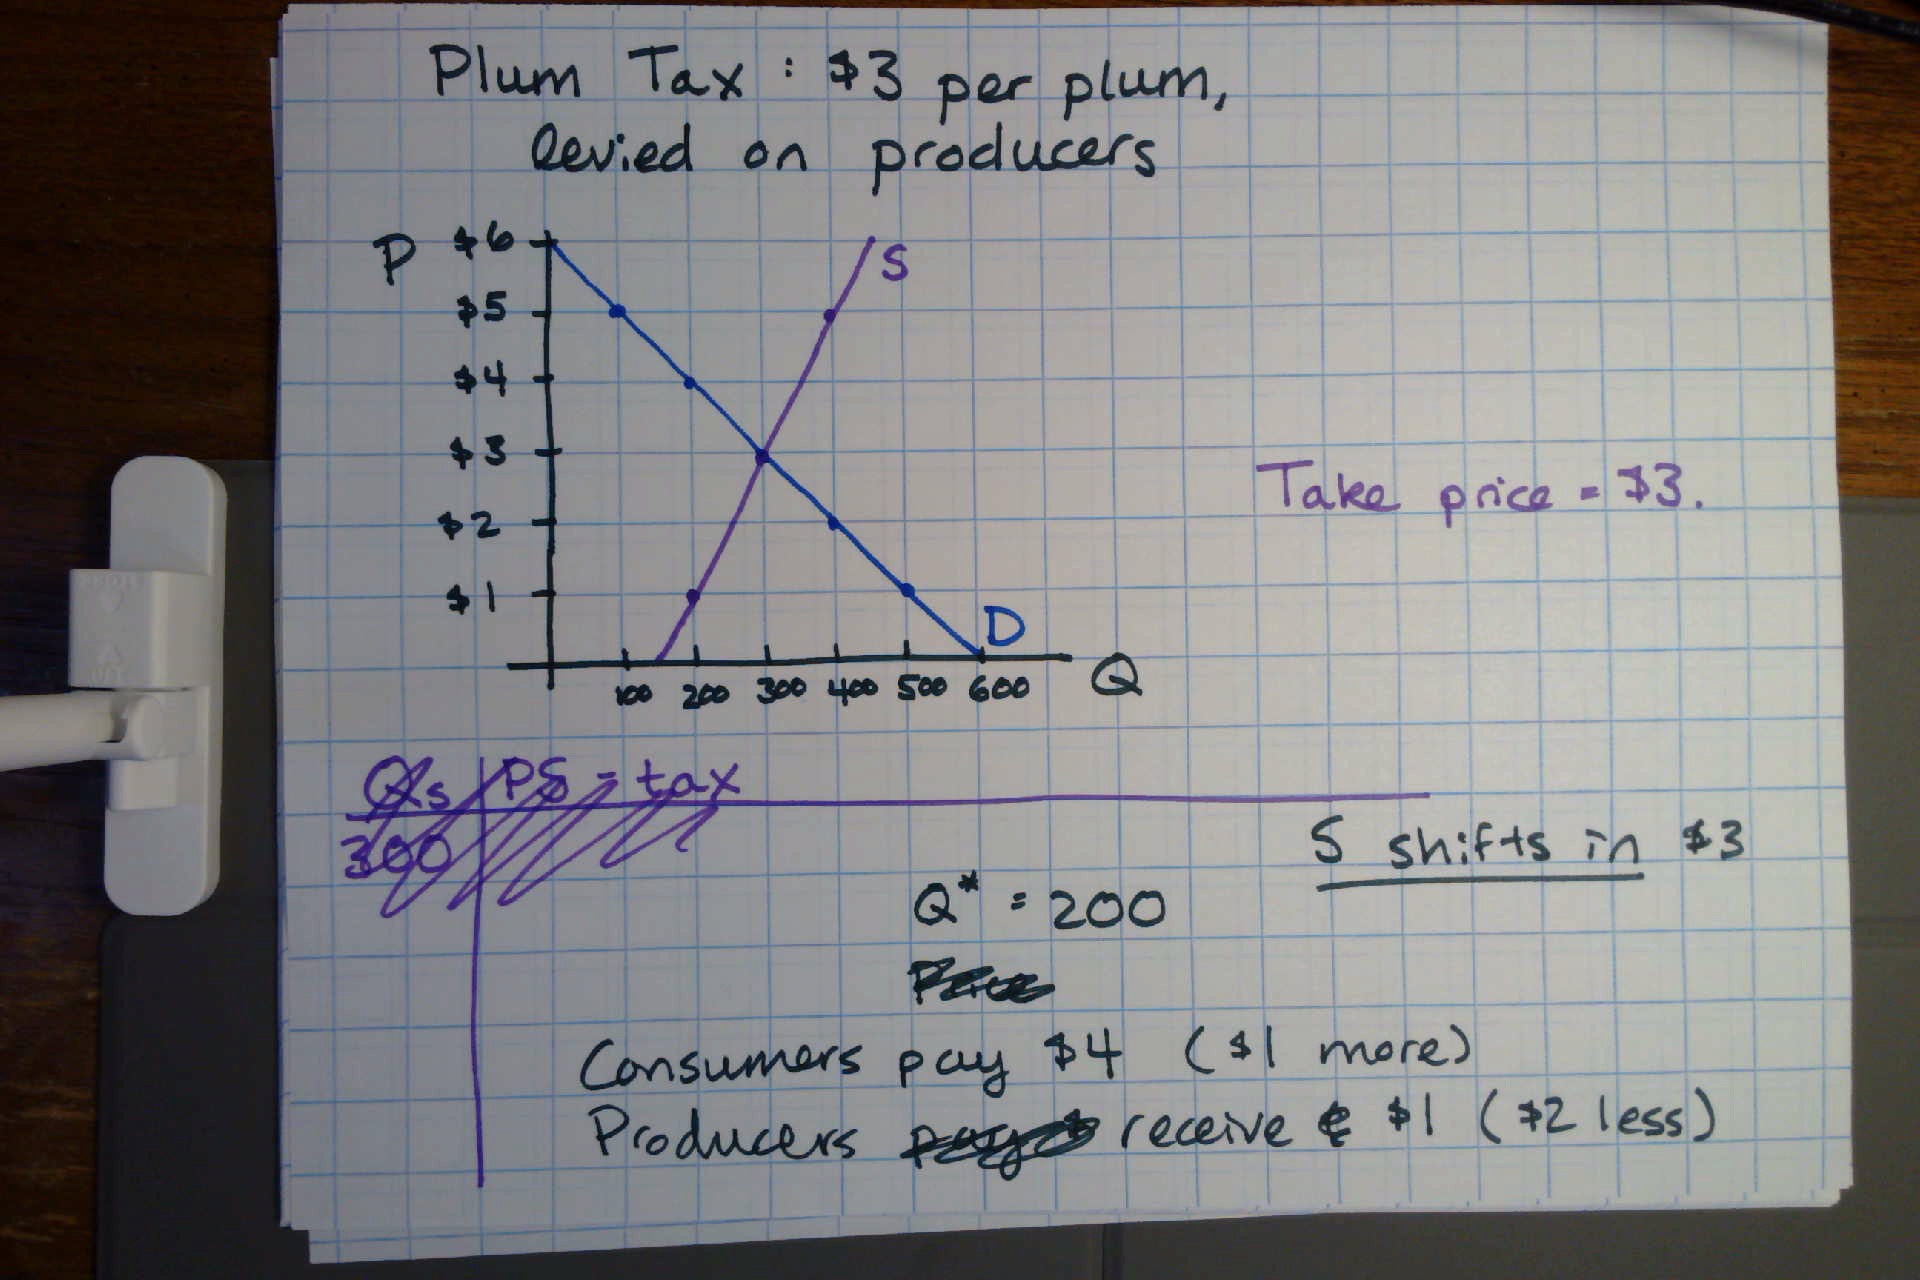 Plum Tax : $3 per plum,
levied on producers
P
$6
$5
$4
$3
$2
$1
S
D
100 200 300 400 500 600
Q
Take price = $3.
Qs PS = tax
300
S shifts in $3
Q* = 200
Price
Consumers pay $4 ($1 more)
Producers pay $ receive $1 ($2 less)